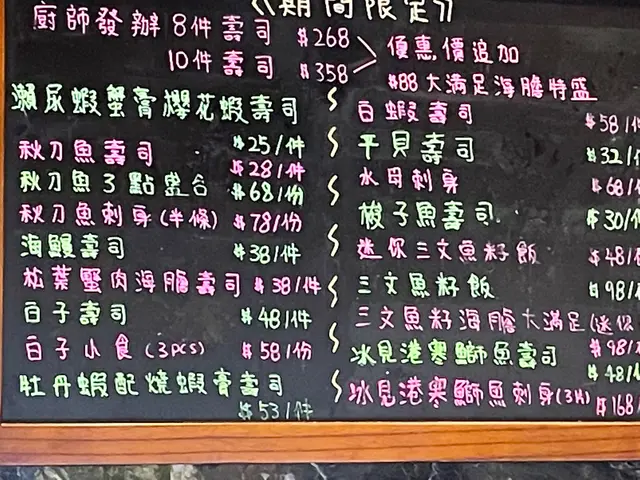 《期間限定》
廚師發辦 8件壽司 $268
10件壽司 $358
優惠價追加
$88 大滿足海膽特盛
瀨尿蝦蟹膏櫻花蝦壽司
$25/件
秋刀魚壽司 $28/件
秋刀魚3點盛合 $68/份
秋刀魚刺身(半條) $78/份
海鰻壽司 $38/件
松葉蟹肉海膽壽司 $38/件
白子壽司 $48/件
白子小食(3pcs) $58/份
牡丹蝦配燒蝦膏壽司
$53/件
白蝦壽司 $58/
干貝壽司 $32/
水母刺身 $68/
梭子魚壽司 $30/
迷你三文魚籽飯 $48/
三文魚籽飯 $98/
三文魚籽海膽大滿足(迷你
$98/
冰見港寒鰤魚壽司 $48/
冰見港寒鰤魚刺身(3片) $168/